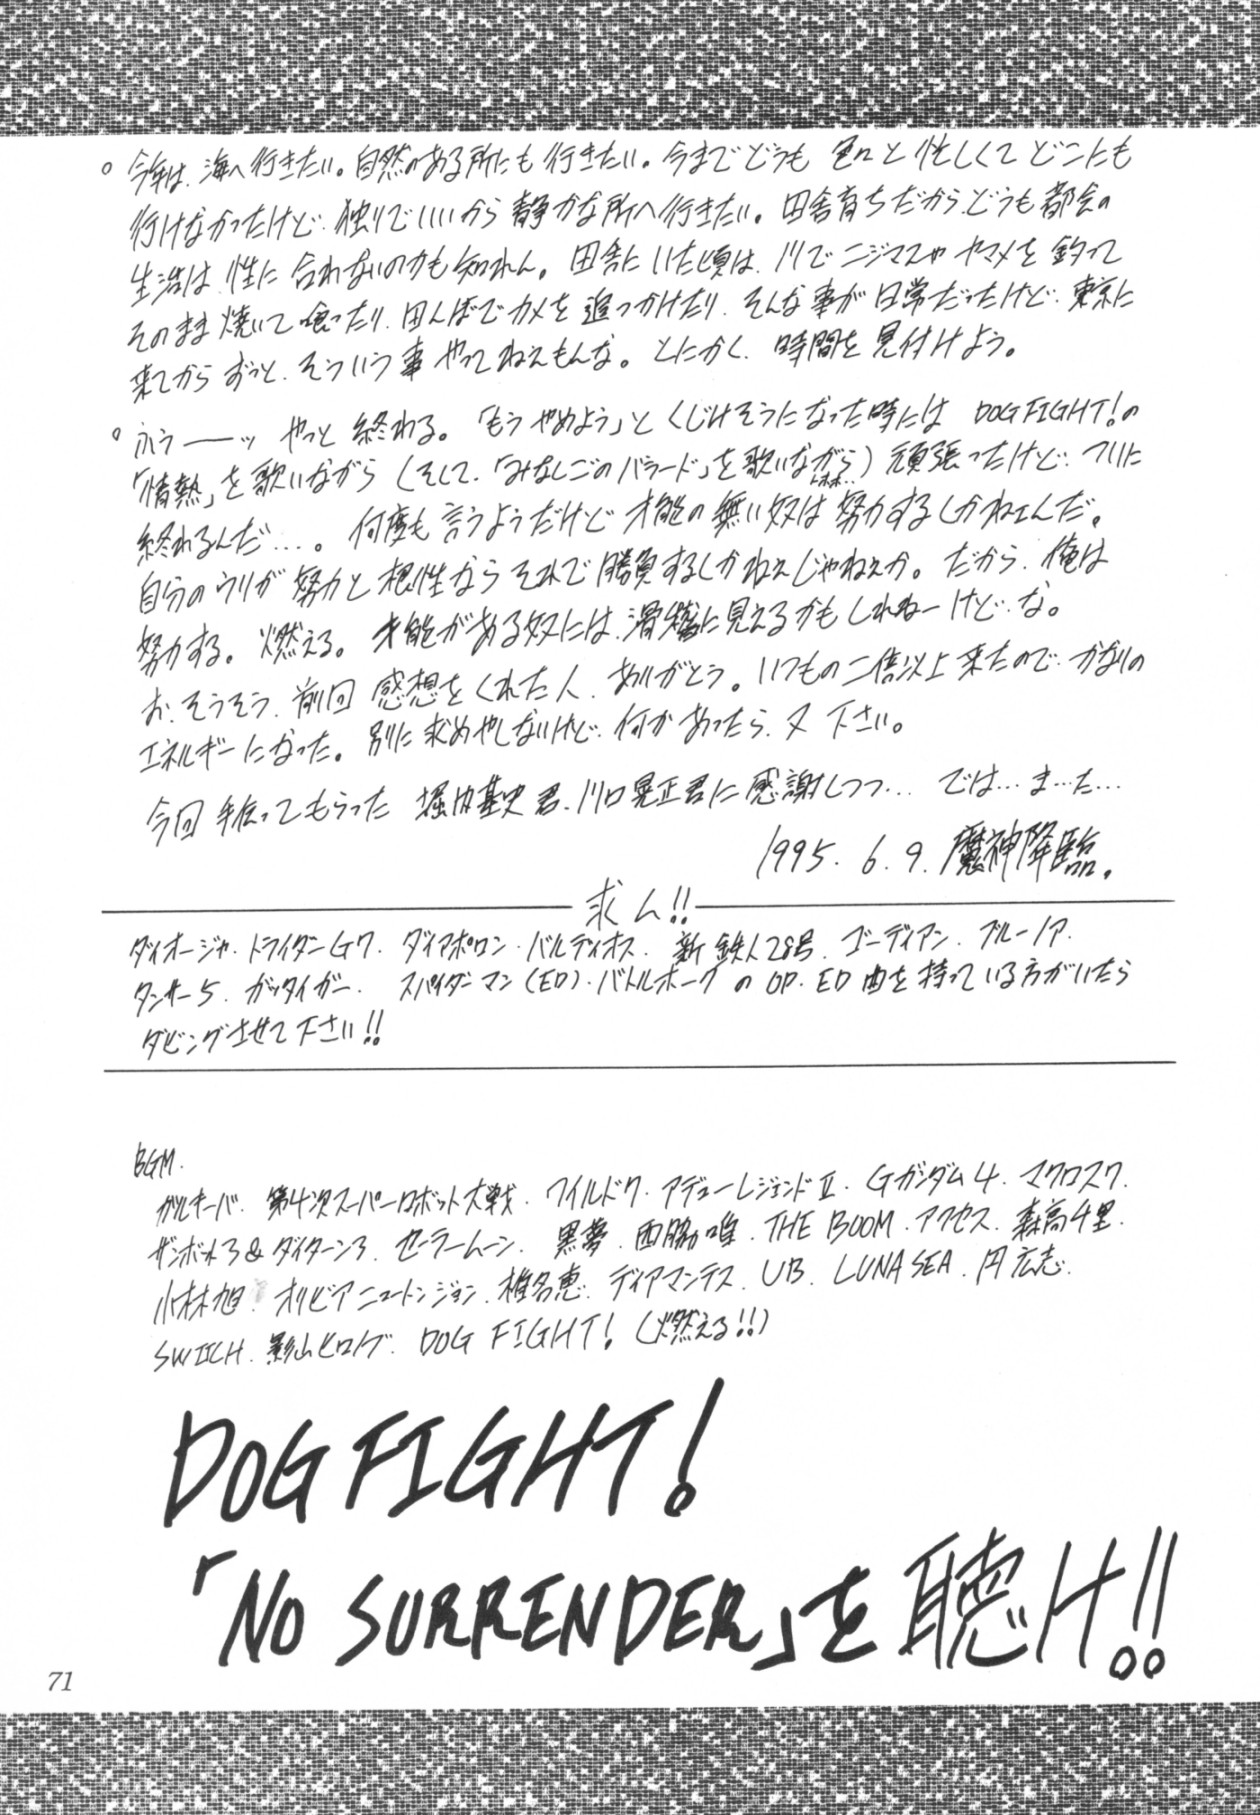 ○ 今年は、海へ行きたい。自然のある所にも行きたい。今までどうも色々と忙しくてどこにも
行けなかったけど、独りでいいから静かな所へ行きたい。田舎育ちだからどうも都会の
生活は、性に合わないのかも知れん。田舎にいた頃は、川でニジマスやヤマメを釣って
そのまま焼いて喰ったり、田んぼでカメを追っかけたり、そんな事が日常だったけど、東京に
来てからずっと、そういう事やってねえもんな。とにかく、時間を見付けよう。
○ ふう――ッ やっと終わる。「もうやめよう」とくじけそうになった時には DOG FIGHT!の
「情熱」を歌いながら(そして、「みなしごのバラード」を歌いながら)頑張ったけど、ついに
終われるんだ…。何度も言うようだけど才能の無い奴は努力するしかねェんだ。
自分のウリが努力と根性ならそれで勝負するしかねえじゃねえか。だから、俺は
努力する。燃える。才能がある奴には、滑稽に見えるかもしれねーけど、な。
お、そうそう、前回感想をくれた人、ありがとう。いつもの二倍以上来たので、かなりの
エネルギーになった。別に求めやしないけど、何かあったら、又下さい。
今回手伝ってもらった 堀内基史君、川口晃正君に感謝しつつ… では…ま…た…
1995. 6. 9. 魔神降臨.
求ム!!
ダイオージャ、トライダーG7、ダイアポロン、バルディオス、新鉄人28号、ゴーディアン、ブルーノア、
タンサー5、ガッタイガー、スパイダーマン(ED)、バトルホークのOP、ED曲を持っている方がいたら
ダビングさせて下さい!!
BGM.
ガルキーバ、第4次スーパーロボット大戦、ワイルド7、アデューレジェンドII、Gガンダム4、マクロス7、
ザンボット3&ダイターン3、セーラームーン、黒夢、西脇唯、THE BOOM、アクセス、森高千里、
小林旭、オリビアニュートンジョン、椎名恵、ディアマンテス、UB、LUNA SEA、円広志、
SWITCH、影山ヒロノブ、DOG FIGHT!(燃える!!)
DOG FIGHT!
「NO SURRENDER」を聴け!!
71